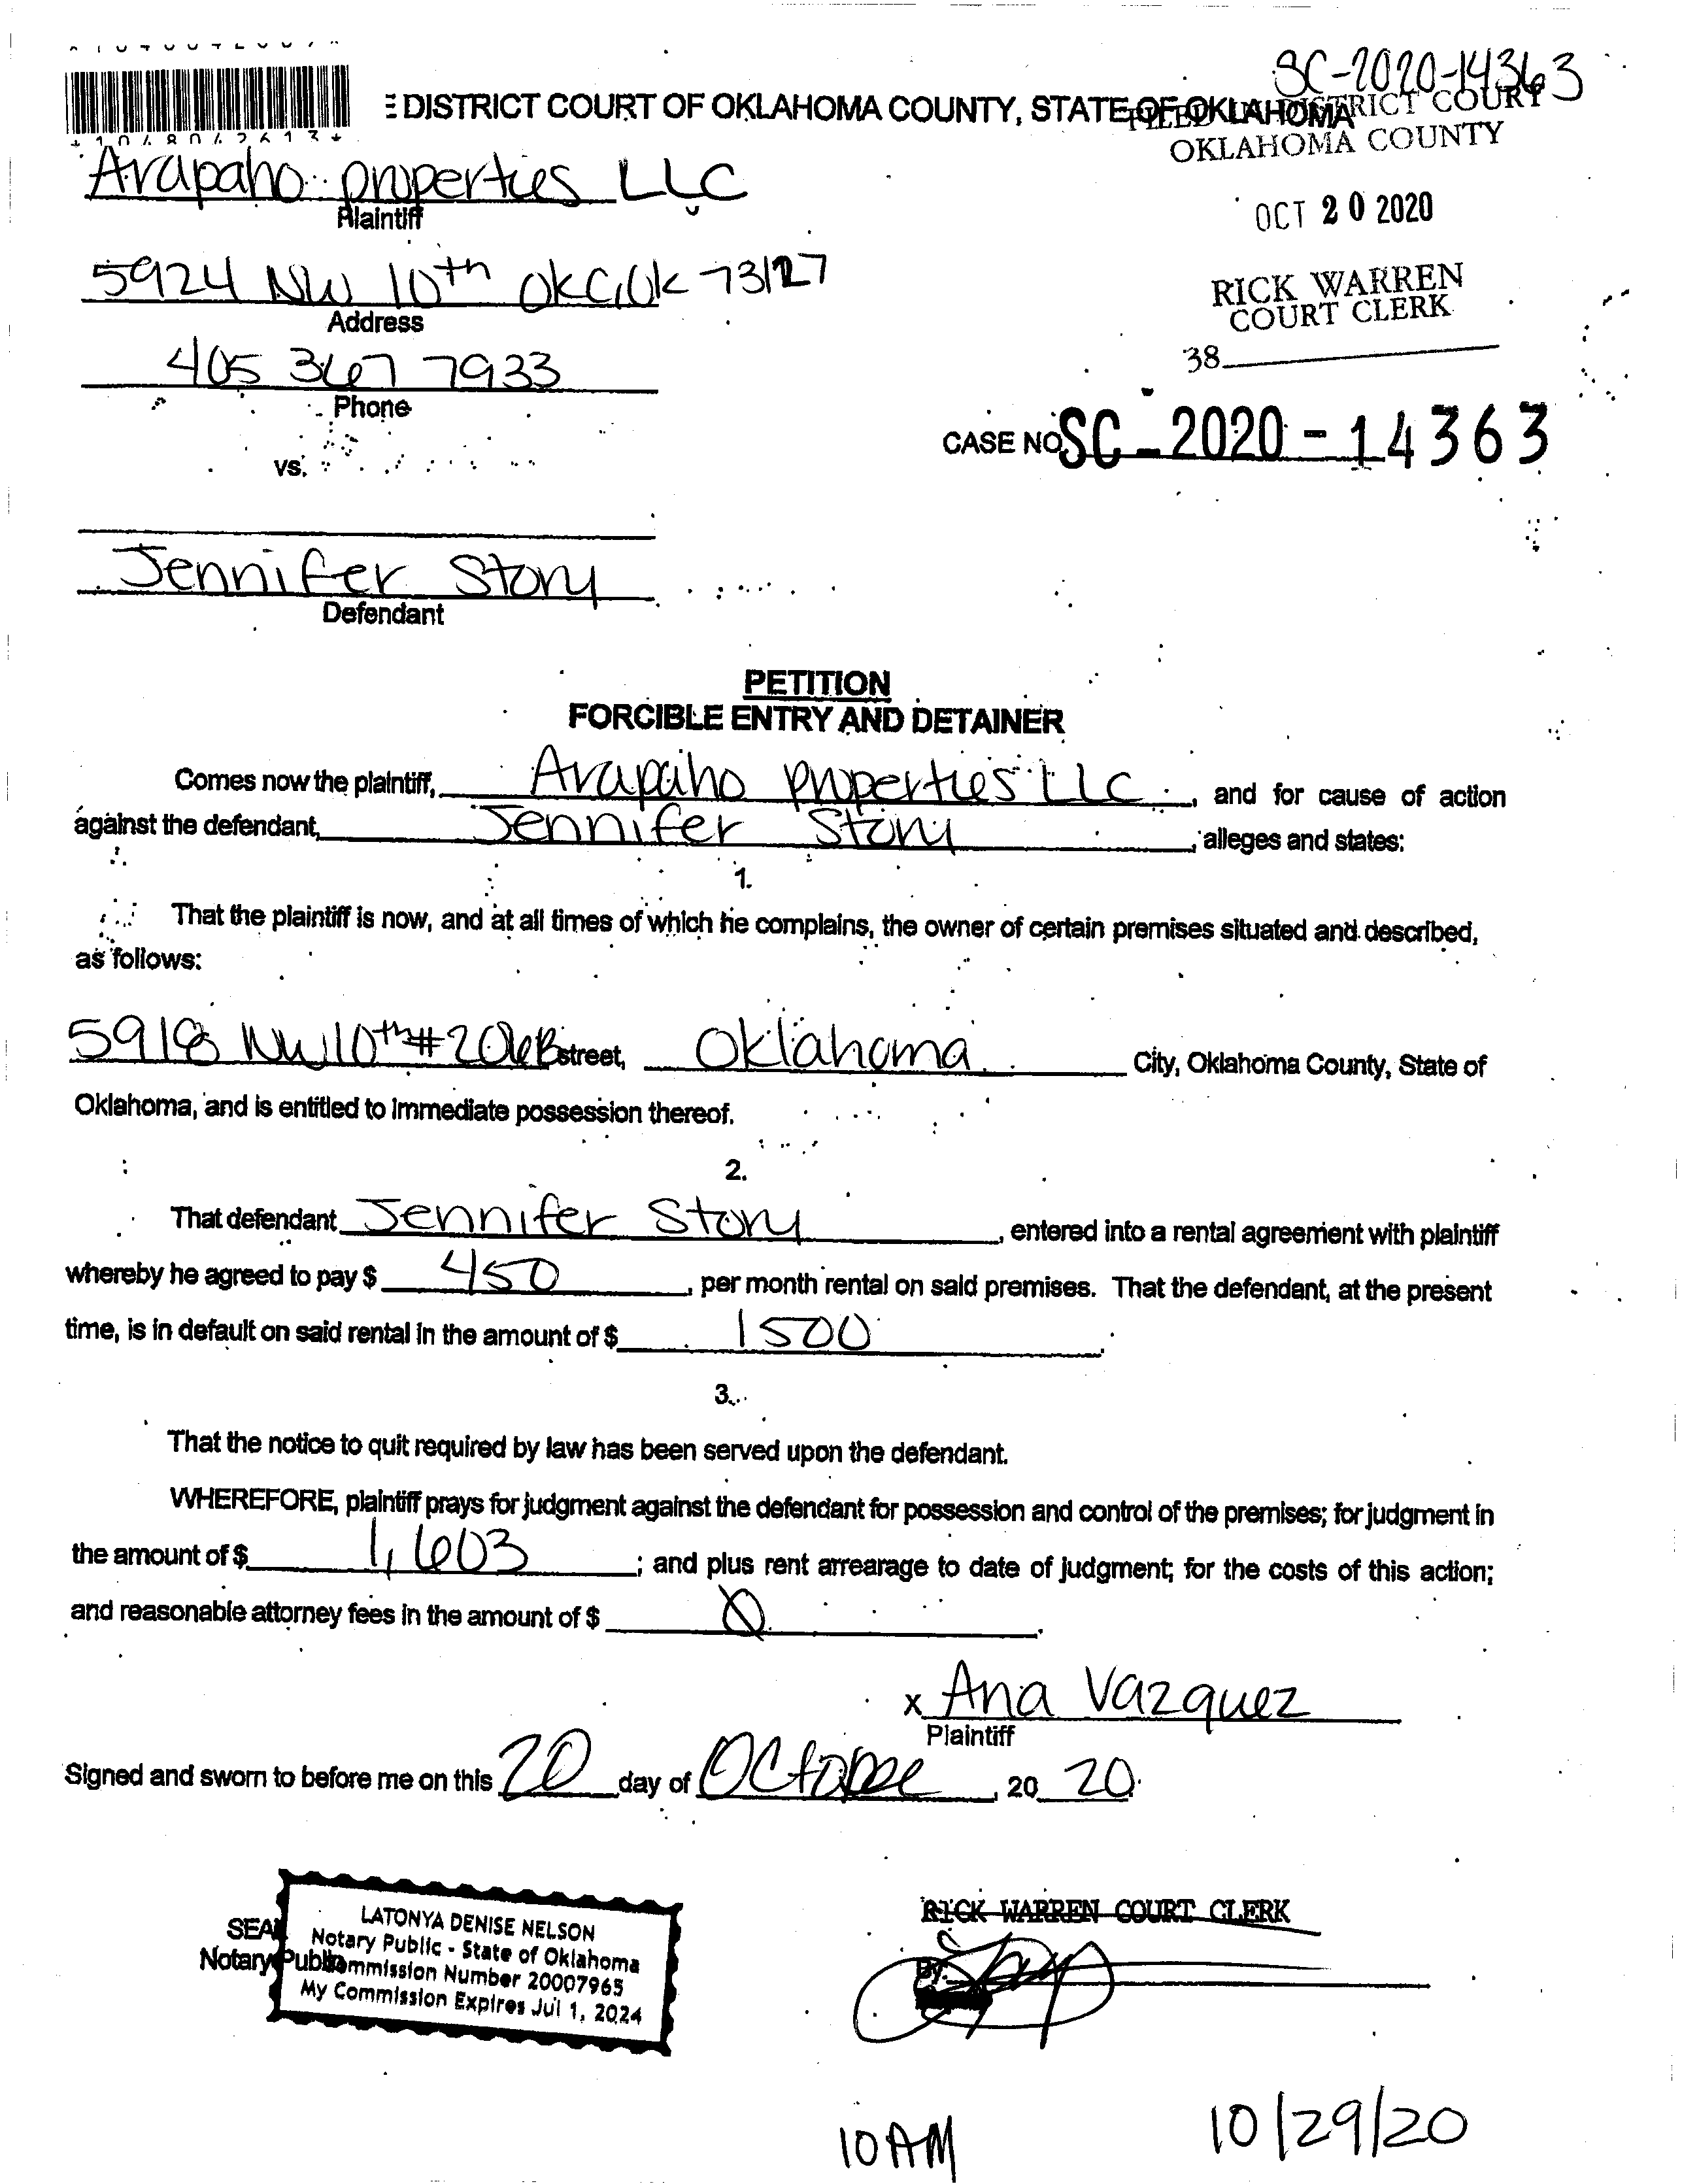 SC-2020-14363
DISTRICT COURT OF OKLAHOMA COUNTY, STATE OF OKLAHOMA
FILED IN DISTRICT COURT
OKLAHOMA COUNTY
*1048042613*
Arapaho properties LLC
Plaintiff
OCT 20 2020
5924 NW 10th OKC, OK 73127
Address
RICK WARREN
COURT CLERK
405 367 7933
Phone
38
CASE NO SC-2020-14363
vs.
Jennifer Story
Defendant
PETITION
FORCIBLE ENTRY AND DETAINER
Comes now the plaintiff, Arapaho properties LLC, and for cause of action
against the defendant, Jennifer Story, alleges and states:
1.
That the plaintiff is now, and at all times of which he complains, the owner of certain premises situated and described,
as follows:
5918 NW 10th #206B street, Oklahoma City, Oklahoma County, State of
Oklahoma, and is entitled to immediate possession thereof.
2.
That defendant Jennifer Story, entered into a rental agreement with plaintiff
whereby he agreed to pay $ 450, per month rental on said premises. That the defendant, at the present
time, is in default on said rental in the amount of $ 1500.
3.
That the notice to quit required by law has been served upon the defendant.
WHEREFORE, plaintiff prays for judgment against the defendant for possession and control of the premises; for judgment in
the amount of $ 1,603; and plus rent arrearage to date of judgment; for the costs of this action;
and reasonable attorney fees in the amount of $ Ø.
x Ana Vazquez
Plaintiff
Signed and sworn to before me on this 20 day of October, 20 20.
SEAL
Notary Public
LATONYA DENISE NELSON
Notary Public - State of Oklahoma
Commission Number 20007965
My Commission Expires Jul 1, 2024
RICK WARREN COURT CLERK
By:
10 AM
10/29/20